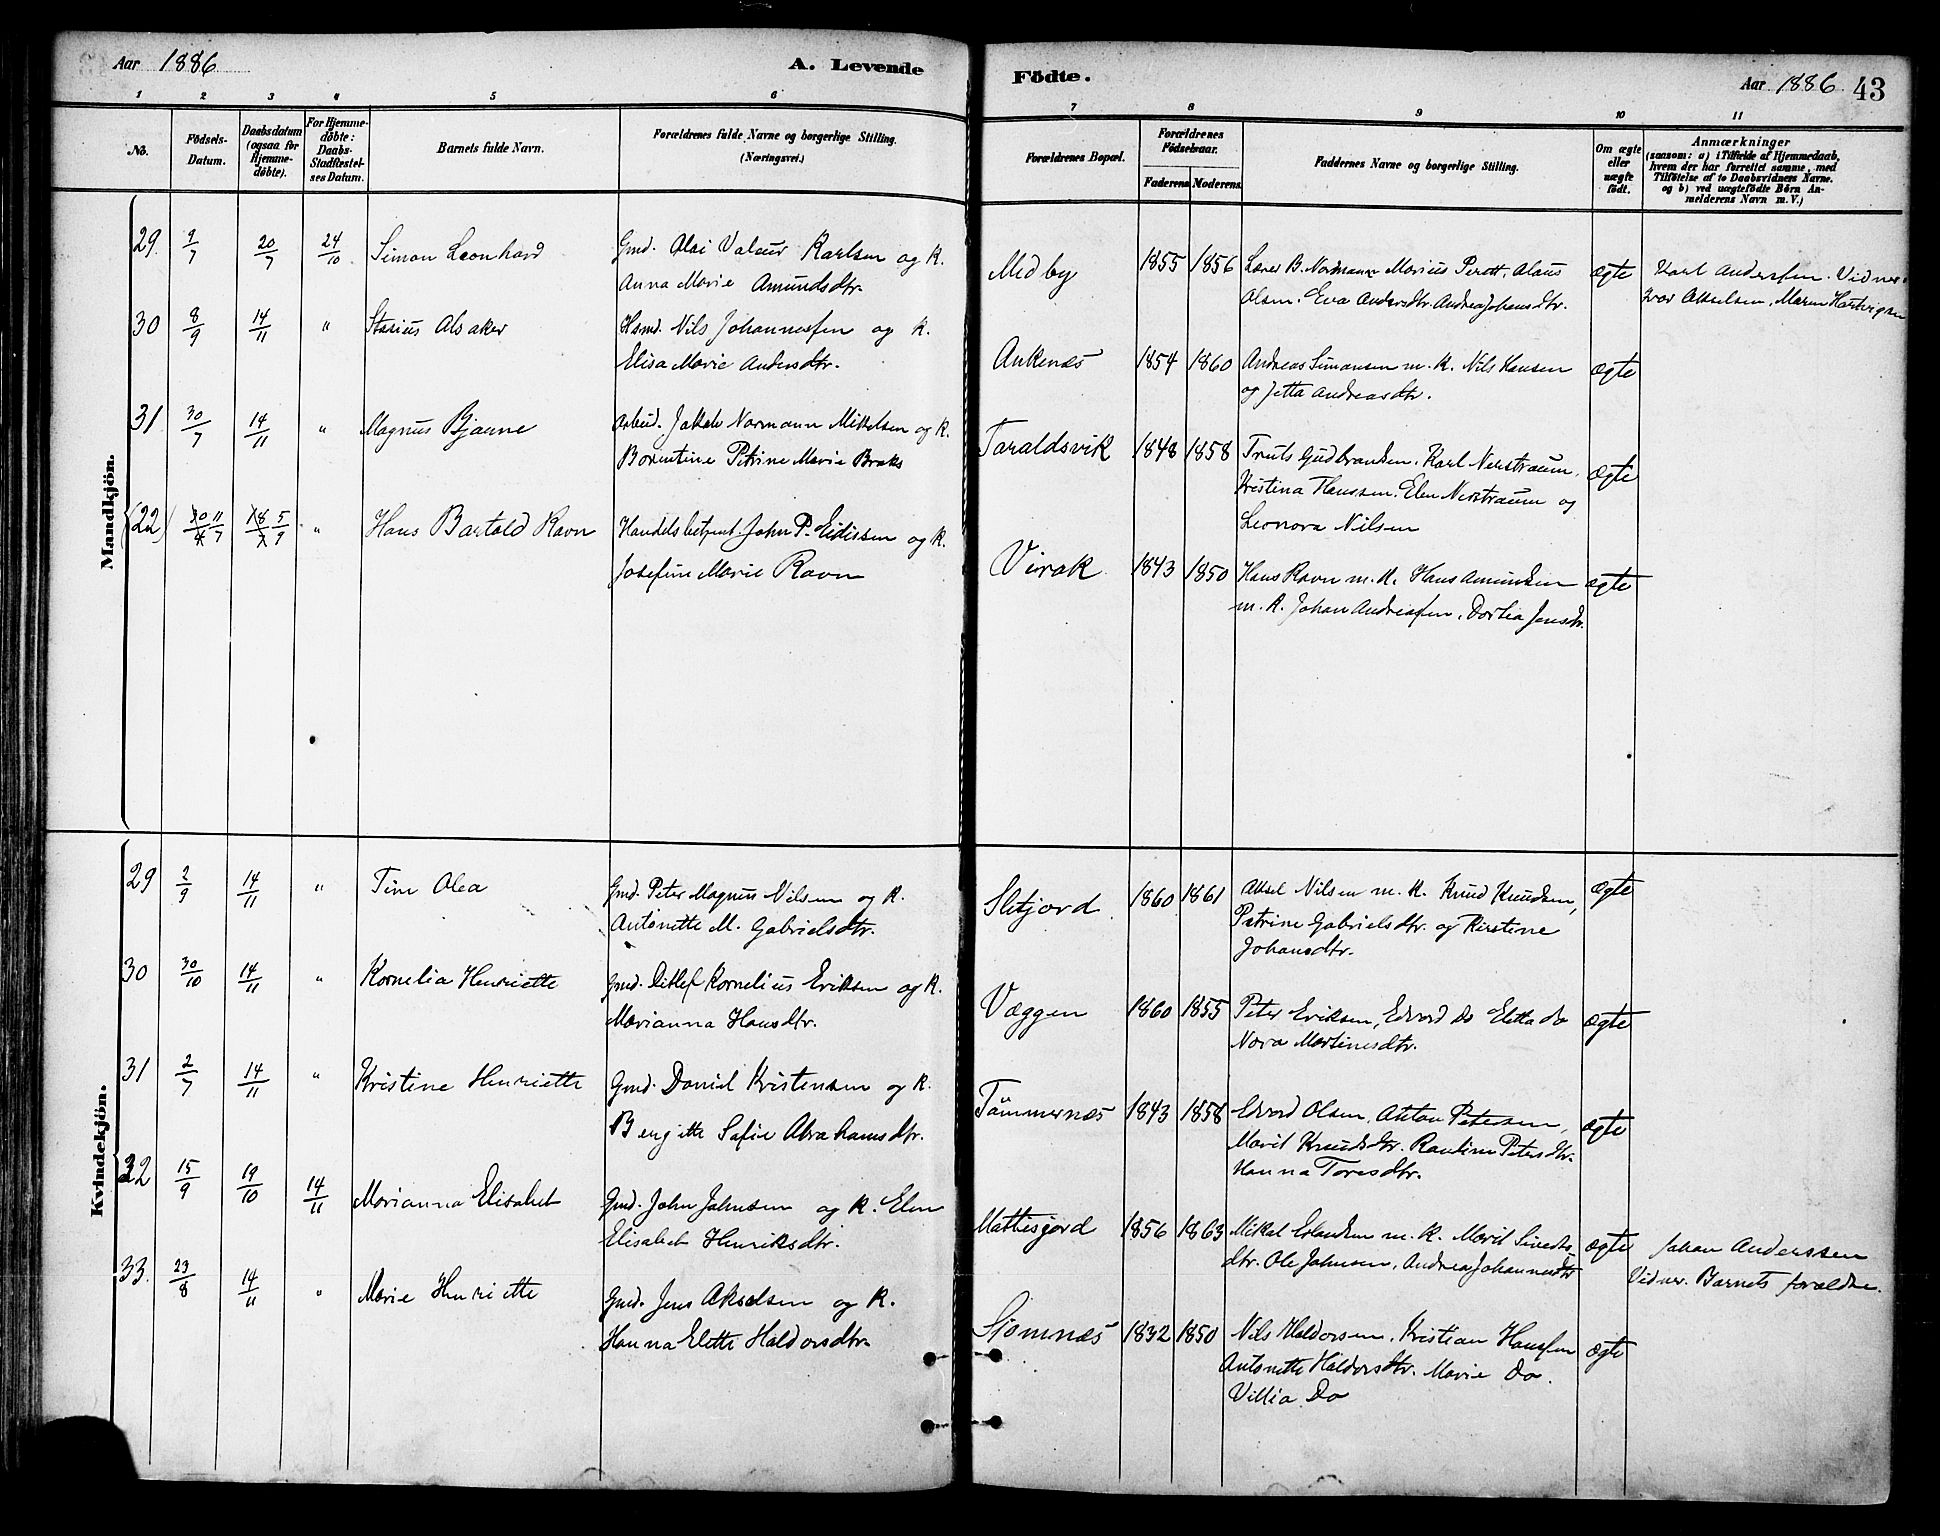 Aar 1886
A. Levende
Födte.
Aar 1886 43
1 2 3 4 5 6 7 8 9 10 11
No.
Födsels-
Datum.
Daabsdatum
(ogsaa for
Hjemme-
döbte).
For Hjemme-
döbte:
Daabs-
Stadfæstel-
ses Datum.
Barnets fulde Navn.
Forældrenes fulde Navne og borgerlige Stilling.
(Næringsvei.)
Forældrenes Bopæl.
Forældrenes
Födselsaar.
Faderens Moderens
Faddernes Navne og borgerlige Stilling.
Om ægte
eller
uægte
födt.
Anmærkninger
(saasom: a) i Tilfælde af Hjemmedaab,
hvem der har forrettet samme, med
Tilföielse af to Daabsvidners Navne.
og b) ved uægtefödte Börn An-
melderens Navn m.V.)
Mandkjön.
29. 9/7 20/7 24/10 Simon Leonhard Gmd. Olai Valeur Karlsen og K.
Anna Marie Amundsdtr.
Medby 1855 1856 Lærer B. Normann Marius Perott. Olaus
Olsen. Eva Andersdtr. Andrea Johansdtr.
ægte Karl Anderssen. Vidner:
Ivar Akselsen, Maren Hartvigsen
30 8/9 14/11 " Starius Alsaker Husmd. Nils Johannessen og K.
Elisa Marie Andersdtr.
Ankenæs 1854 1860 Andreas Simonsen m. K. Nils Hansen
og Jetta Andreasdtr.
ægte
31. 30/7 14/11 " Magnus Bjarne Arbeid. Jakob Normann Mikkelsen og K.
Borentine Petrine Marie Braks
Taraldsvik 1848 1858 Truls Gudbransen. Karl Nerstraum.
Kristina Hanssen. Elen Nerstraum og
Leonora Nilsen
ægte
(22) 30/4 11/7 18/7 5/9 " Hans Bartold Ravn Handelsbetjent John P. Eidissen og K.
Josefine Marie Ravn
Virak 1843 1850 Hans Ravn m. K. Hans Amundsen
m. K. Johan Andreassen, Dortea Jensdtr.
ægte
Kvindekjön.
29 2/9 14/11 " Tine Olea Gmd. Peter Magnus Nilsen og K.
Antonette M. Gabrielsdtr.
Sletjord 1860 1861 Aksel Nilsen m. K. Knud Knudsen,
Petrine Gabrielsdtr. og Kirstine
Johansdtr.
ægte
30 30/10 14/11 " Kornelia Henriette Gmd. Ditlef Kornelius Eriksen og K.
Marianna Hansdtr.
Væggen 1860 1855 Peter Eriksen, Edvard do Eletta do
Nora Martinesdtr.
ægte
31 2/7 14/11 " Kristine Henriette Gmd. Daniel Kristensen og K.
Bengitte Safie Abrahamsdtr.
Tömmernæs 1843 1858 Edvard Olsen, Anton Petersen,
Marit Knudsdtr. Rautine Petersdtr.
Hanna Toresdtr.
ægte
32 15/9 19/10 14/11 Marianna Elisabet Gmd. John Johnsen og K. Elen
Elisabet Henriksdtr.
Mattisjord 1856 1863 Mikal Erlandsen m. K. Marit Sivertsdtr.
Ole Johnsen, Andrea Johannesdtr
ægte Johan Anderssen
Vidner. Barnets forældre.
33. 23/8 14/11 " Marie Henriette Gmd. Jens Akselsen og K.
Hanna Elette Haldorsdtr.
Sjomnæs 1832 1850 Nils Haldorsen, Kristian Hanssen
Antonette Haldorsdtr. Marie Do.
Villia Do
ægte